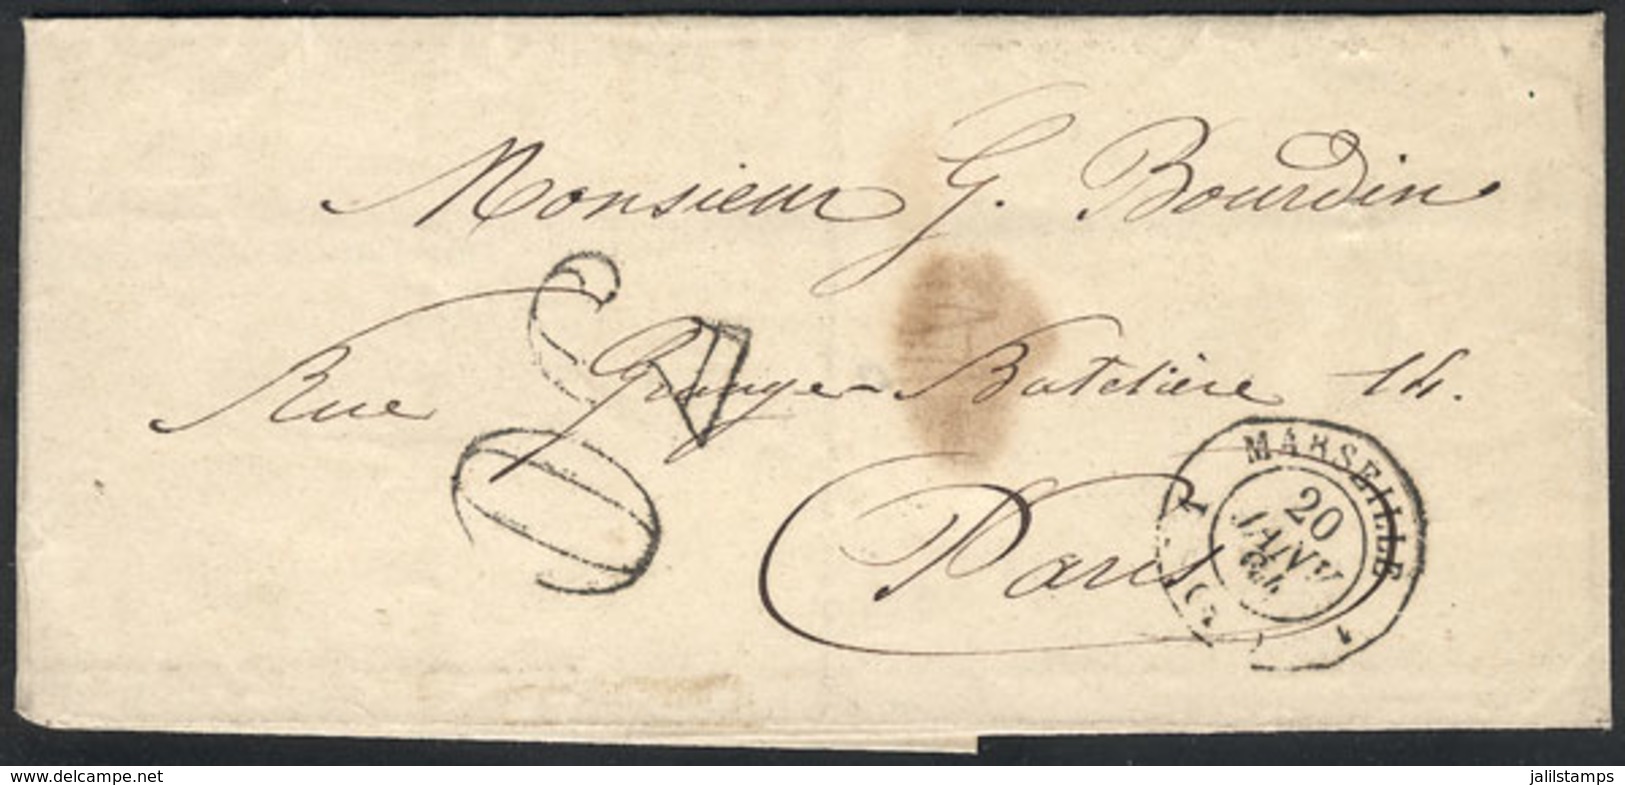 Monsieur G. Bourdin
Rue Grange-Batelière 14.
Paris
MARSEILLE
20
JANV
64
1
www.delcampe.net
jalilstamps